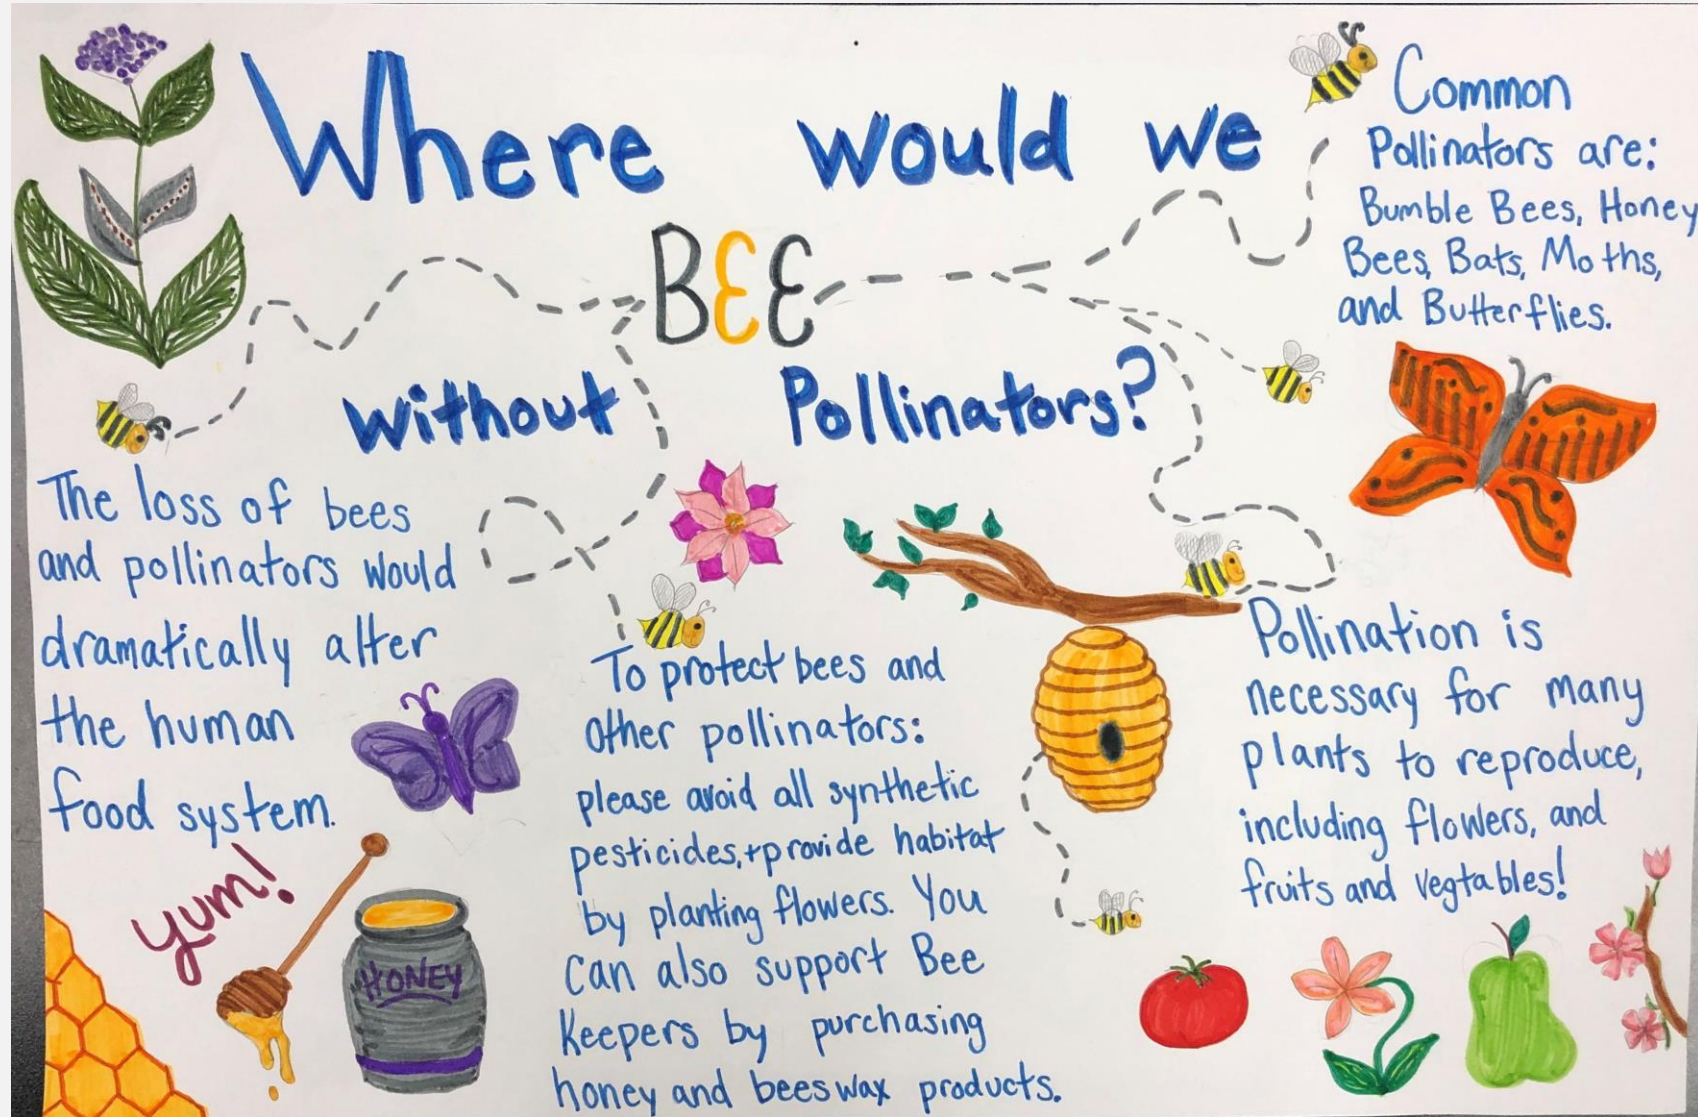 Where would we
BEE
without Pollinators?
Common
Pollinators are:
Bumble Bees, Honey
Bees, Bats, Moths,
and Butterflies.
The loss of bees
and pollinators would
dramatically alter
the human
food system.
yum!
HONEY
To protect bees and
other pollinators:
please avoid all synthetic
pesticides,+provide habitat
by planting flowers. You
can also support Bee
Keepers by purchasing
honey and beeswax products.
Pollination is
necessary for many
plants to reproduce,
including flowers, and
fruits and vegtables!